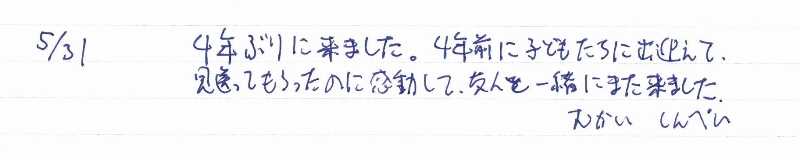 5/31 4年ぶりに来ました。4年前に子どもたちに出迎えて、
見送ってもらったのに感動して、友人を一緒にまた来ました。
むかい しんぺい